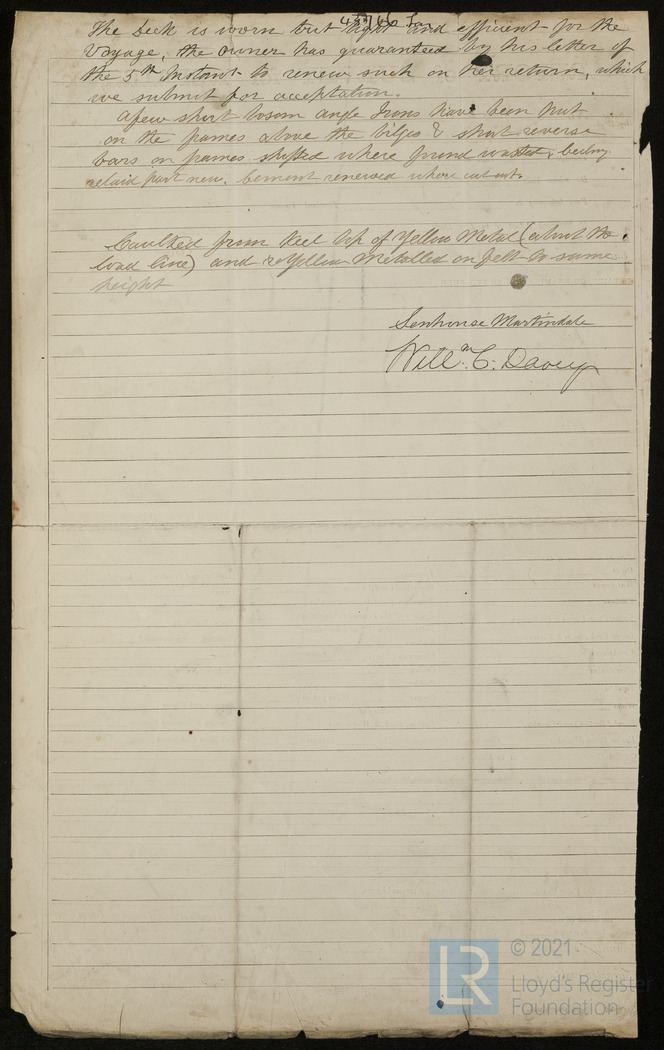 433/66 Iron
The Deck is worn but tight and efficient for the
Voyage, the owner has guaranteed by his letter of
the 5th Instant to renew such on her return, which
we submit for acceptation.
A few short bosom angle Irons have been put
on the frames above the bilges & short reverse
bars on frames shifted where found wasted, ceiling
relaid part new. Cement renewed where cut out.
Caulked from Keel top of Yellow Metal (about the
load line) and reYellow Metalled on felt to same
height
Senhouse Martindale
Willm. C. Davey
LR
© 2021
Lloyd's Register
Foundation